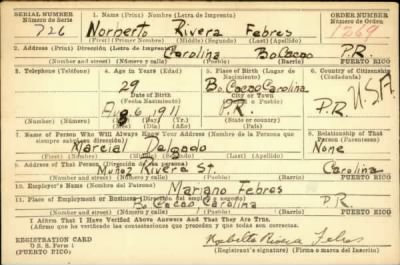 SERIAL NUMBER
Número de Serie
726
1. Name (Print) Nombre (Letra de Imprenta)
Norberto Rivera Febres
(First) (Primer Nombre) (Middle) (Segundo) (Last) (Apellido)
ORDER NUMBER
Número de Orden
1269
2. Address (Print) Dirección (Letra de Imprenta)
Carolina Bo. Cacao P.R.
(Number and street) (Número y calle) PUERTO RICO
3. Telephone (Teléfono)
4. Age in Years (Edad)
29
Date of Birth
(Fecha Nacimiento)
6 1911
(Day) (Yr.)
(Día) (Año)
5. Place of Birth (Lugar de Nacimiento)
Bo. Cacao Carolina
City or Town
P.R.
(State or country)
(Estado o país)
6. Country of Citizenship
(Ciudadanía)
P.R. USA
7. Name of Person Who Will Always Know Your Address (Nombre de la Persona que siempre sabrá su dirección)
Marcial Delgado
(Middle) (Segundo) (Last) (Apellido)
8. Relationship of That Person (Parentesco)
None
9. Address of That Person (Dirección de esa persona)
Muñoz Rivera St. Carolina
(Number and street) (Número y calle) PUERTO RICO
10. Employer's Name (Nombre del Patrono)
Mariano Febres
11. Place of Employment or Business (Dirección del empleo o negocio)
Bo. Cacao Carolina P.R.
(Number and street) (Número y calle) PUERTO RICO
I Affirm That I Have Verified Above Answers And That They Are True.
(Afirmo que he verificado las contestaciones que preceden y que son ciertas.)
REGISTRATION CARD
D. S. S. Form 1
(PUERTO RICO)
Norberto Rivera Febres
Registrant's signature (Firma o marca del inscrito)